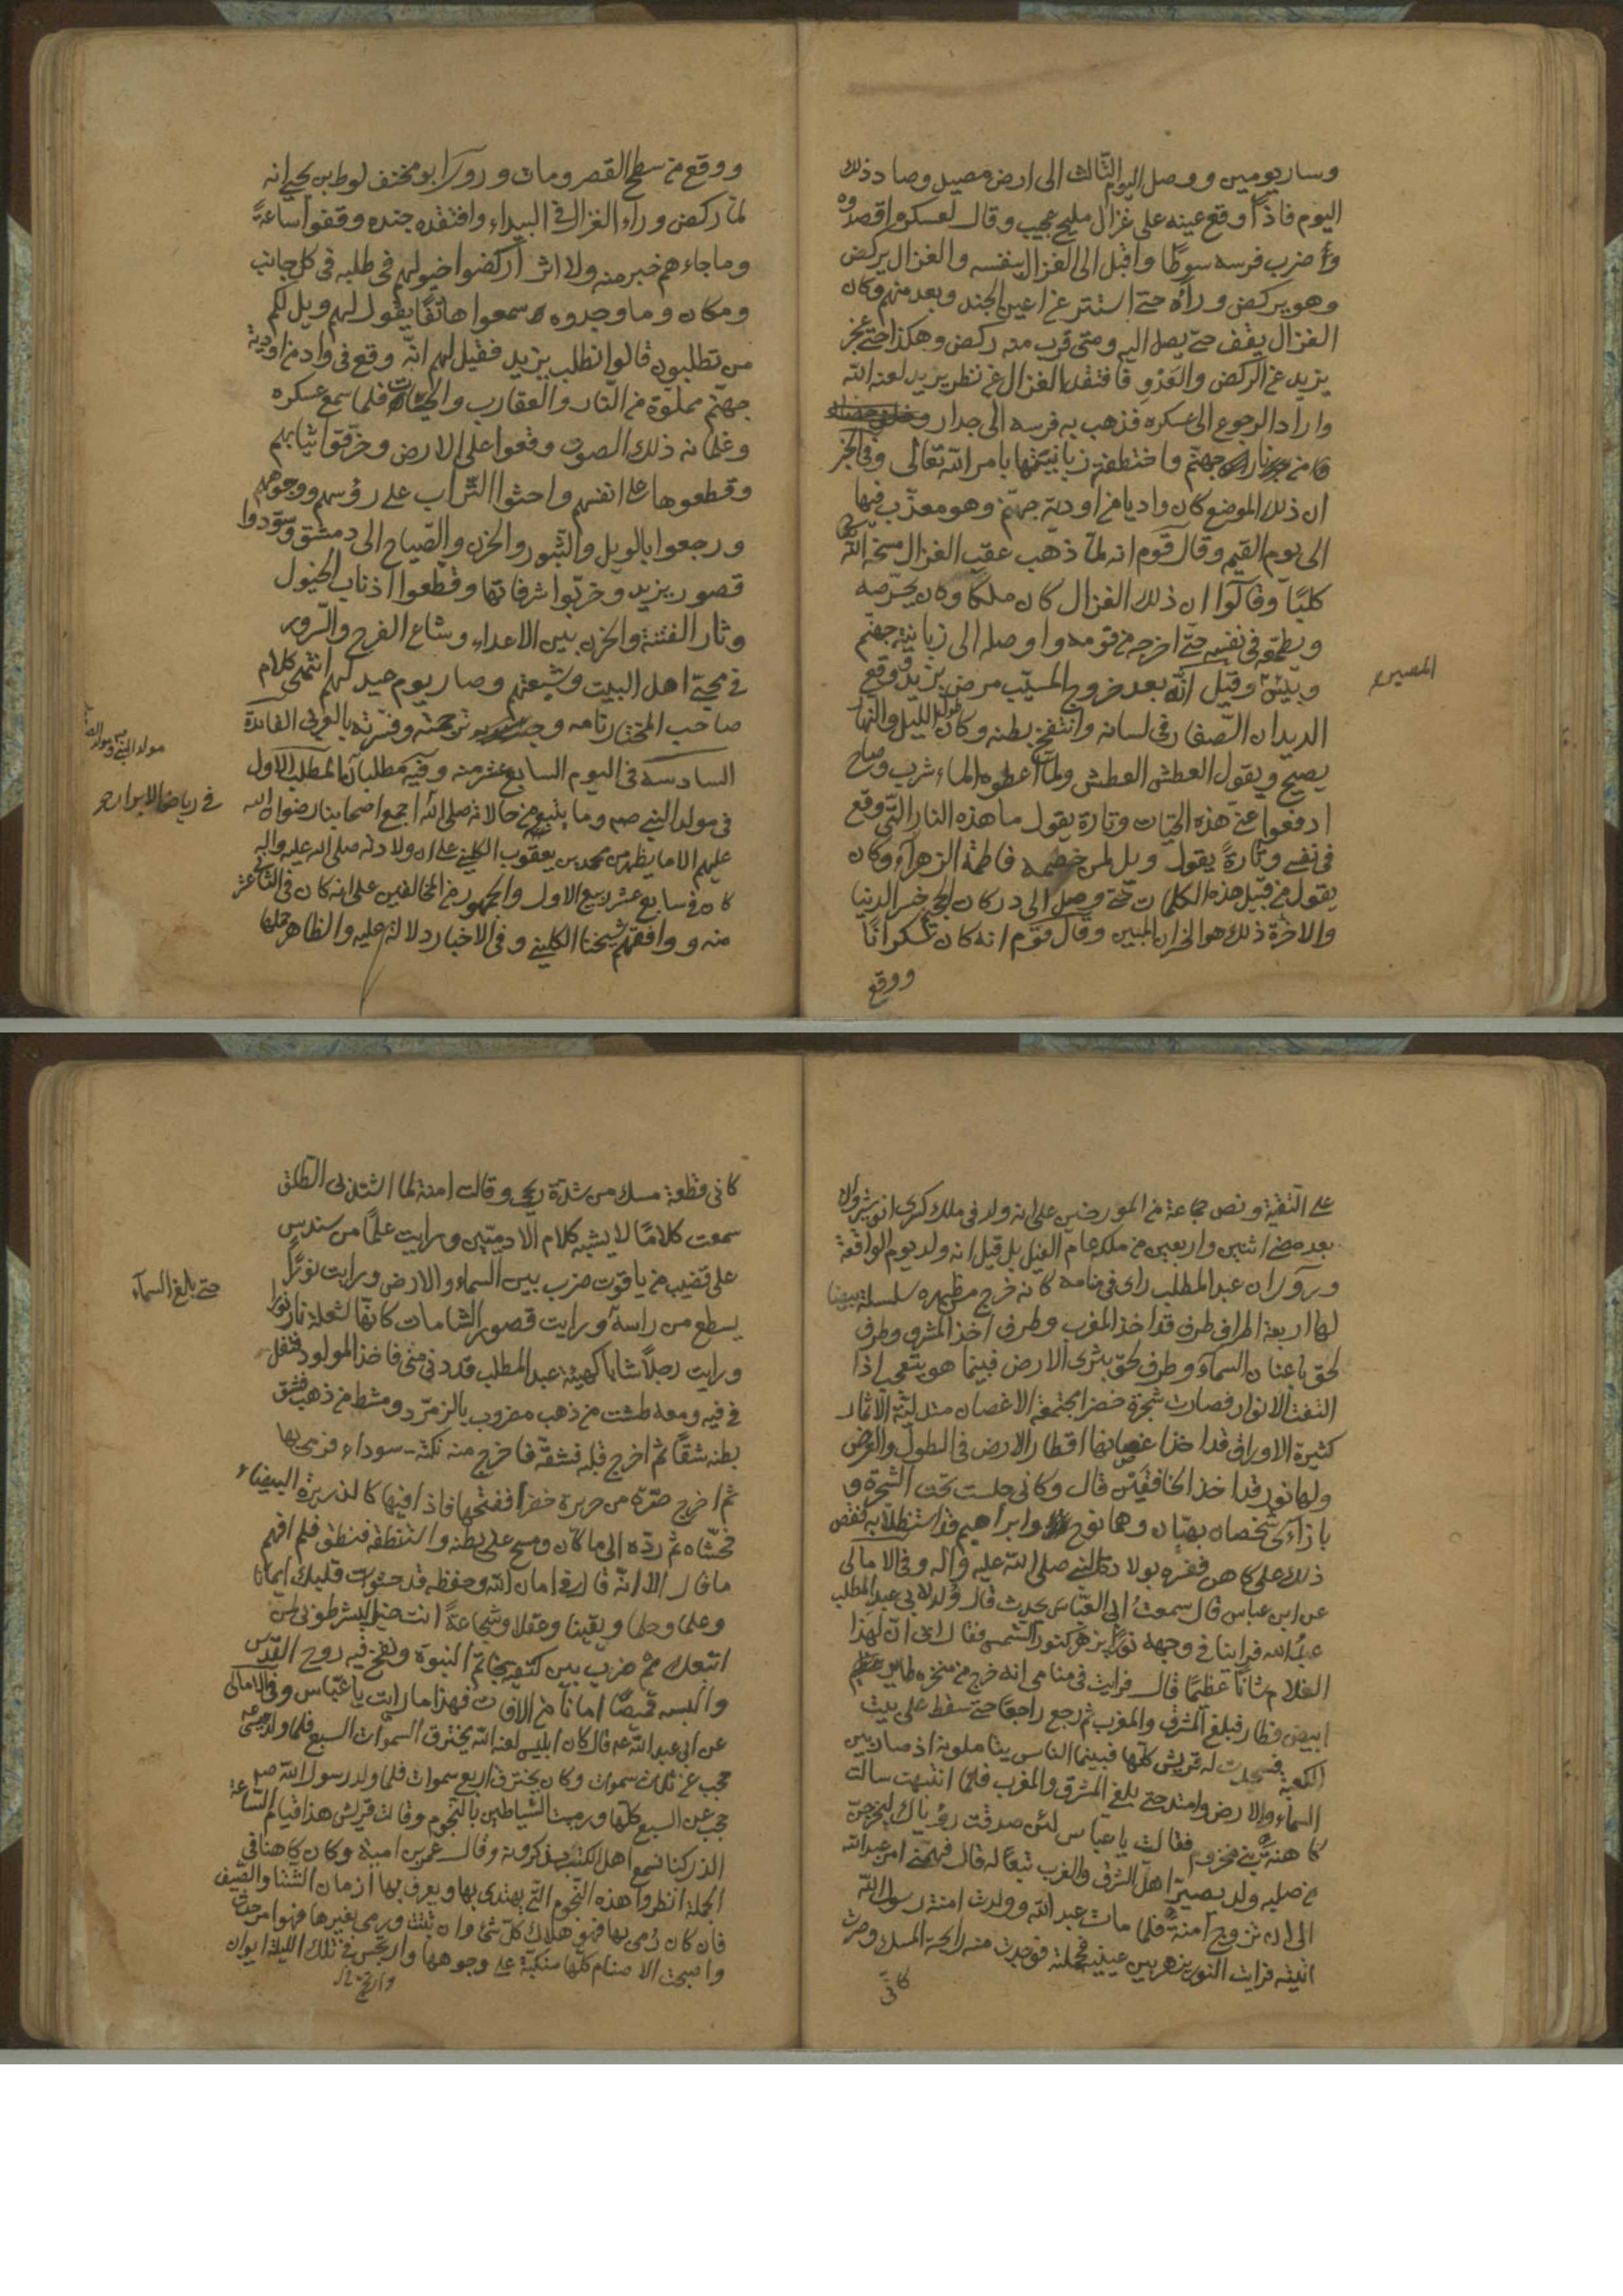 وسار يومين ووصل اليوم الثالث الى ارض مصيل وصاد ذلك
اليوم فاذا وقع عينه على غزال مليح عجيب وقال لعسكره اقصدوه
وضرب فرسه سوطا واقبل الى الغزال بنفسه والغزال يركض
وهو يركض وراه حتى استتر عن اعين الجند وبعد منهم وكان
الغزال يقف حتى يصل اليه ومتى قرب منه ركض وهكذا حتى عجز
يزيد عن الركض والعدو فافتقد الغزال عن نظر يزيد لعنه الله
واراد الرجوع الى عسكره فذهب به فرسه الى جدار
من نار جهنم واختطفته زبانيتها بامر الله تعالى وفي الخبر
ان ذلك الموضع كان واديا من اودية جهنم وهو معذب فيها
الى يوم القيمة وقال قوم انه لما ذهب عقب الغزال مسخه الله
كلبا وقالوا ان ذلك الغزال كان ملكا وكان يحرصه
ويطمعه في نفسه حتى اخرجه من قومه واوصله الى زبانية جهنم
وبئس وقيل انه بعد خروج المسيب مرض يزيد ووقع
المصير
الديدان الصغار في لسانه وانتفخ بطنه وكان طول الليل والنهار
يصيح ويقول العطش العطش ولما اعطوه الماء شرب وصاح
ادفعوا عني هذه الحيات وتارة يقول ما هذه النار التي وقع
في نفسي وتارة يقول ويل لمن خصمه فاطمة الزهراء وكان
يقول من قبيل هذه الكلمات حتى وصل الى دركات الجحيم خسر الدنيا
والاخرة ذلك هو الخسران المبين وقال قوم انه كان سكرانا
ووقع
ووقع من سطح القصر ومات وروى ابو مخنف لوط بن يحيى انه
لما ركض وراء الغزال في البيداء وافتقده جنده وقفوا ساعة
وما جاءهم خبر منه ولا اثر اركضوا خيولهم في طلبه في كل جانب
ومكان وما وجدوه سمعوا هاتفا يقول لهم ويل لكم
من تطلبون قالوا نطلب يزيد فقيل لهم انه وقع في واد من اودية
جهنم مملوة من النار والعقارب والحيات فلما سمع عسكره
وغلمانه ذلك الصوت وقعوا على الارض وخرقوا ثيابهم
وقطعوها على انفسهم واحثوا التراب على رؤسهم ووجوههم
ورجعوا بالويل والثبور والحزن والصياح الى دمشق وسودوا
قصور يزيد وخربوا شرفاتها وقطعوا اذناب الخيول
وثار الفتنة والحزن بين الاعداء وشاع الفرح والسرور
في محبي اهل البيت وشيعتهم وصار يوم عيد لهم انتهى كلام
صاحب المختار نامه وترجمته وفسرته بالعربي الفائدة
السادسة في اليوم السابع عشر منه وفيه مطلبان المطلب الاول
مولد النبي
في مولد النبي صم وما يتبعه من حالاته صلى الله اجمع اصحابنا رضوان الله
في رياض الابرار
عليهم الا ما يظهر من محمد بن يعقوب الكليني على ان ولادته صلى الله عليه واله
كان في سابع عشر ربيع الاول والجمهور من المخالفين على انه كان في الثاني عشر
منه ووافقهم شيخنا الكليني وفي الاخبار دلالة عليه والظاهر حملها
على التقية ونص جماعة من المورخين على انه ولد في ملك كسرى انوشروان
بعد مضي اثنين واربعين من ملكه عام الفيل بل قيل انه ولد يوم الواقعة
وروي ان عبد المطلب راى في منامه كانه خرج من ظهره سلسلة بيضا
لها اربعة اطراف طرف قد اخذ المغرب وطرف اخذ المشرق وطرف
لحق باعنان السماء وطرف لحق بثرى الارض فبينما هو يتعجب اذا
التفت الانوار فصارت شجرة خضرا مجتمعة الاغصان متدلية الاثمار
كثيرة الاوراق قد اخذ اغصانها اقطار الارض في الطول والعرض
ولها نور قد اخذ الخافقين قال وكاني جلست تحت الشجرة و
بازائي شخصان بهيان وهما نوح وابراهيم قد استظلا به فقص
ذلك على كاهن ففسره بولادة النبي صلى الله عليه واله وفي الامالي
عن ابن عباس قال سمعت ابي العباس يحدث قال ولد لابي عبد المطلب
عبد الله فراينا في وجهه نورا يزهر كنور الشمس فقال ابي ان لهذا
الغلام شانا عظيما قال فرايت في منامي انه خرج من منخره طاير
ابيض فطار فبلغ المشرق والمغرب ثم رجع راجعا حتى سقط على بيت
الكعبة فسجدت له قريش كلها فبينما الناس يتاملونه اذ صار بين
السماء والارض وامتد حتى بلغ المشرق والمغرب فلما انتبهت سالت
كاهنة بني مخزوم فقالت يا عباس لئن صدقت رؤياك ليخرجن
من صلبه ولد يصير اهل الشرق والغرب تبعا له قال فهمني امر عبد الله
الى ان تزوج امنة فلما مات عبد الله وولدت امنة رسول الله
اتيته فرايت النور يزهر بين عينيه فحملته فوجدت منه رايحة المسك وصرت
كاني
كاني قطعة مسك من شدة ريحي وقالت امنة لما اشتد بي الطلق
سمعت كلاما لا يشبه كلام الادميين ورايت علما من سندس
على قضيب من ياقوت ضرب بين السماء والارض ورايت نورا
حتى بلغ السماء
يسطع من راسه ورايت قصور الشامات كانها شعلة نار نورا
ورايت رجلا شابا كهيئة عبد المطلب قد دنى مني فاخذ المولود فتفل
في فيه ومعه طشت من ذهب مضروب بالزمرد ومشط من ذهب فشق
بطنه شقا ثم اخرج قلبه فشقه فاخرج منه نكتة سوداء فرمى بها
ثم اخرج صرة من حريرة خضرا ففتحها فاذا فيها كالذريرة البيضاء
فحشاه ثم رده الى ما كان ومسح على بطنه واستنطقه فنطق فلم افهم
ما قال الا انه قال في امان الله وحفظه قد حشوت قلبك ايمانا
وعلما وحلما ويقينا وعقلا وشجاعة انت خير البشر طوبى لمن
اتبعك ثم ضرب بين كتفيه خاتم النبوة ونفخ فيه روح القدس
والبسه قميصا امانا من الافات فهذا ما رايت يا عباس وفي الامالي
عن ابي عبد الله عم قال كان ابليس لعنه الله يخترق السموات السبع فلما ولد عيسى
حجب عن ثلاث سموات وكان يخترق اربع سموات فلما ولد رسول الله صم
حجب عن السبع كلها ورميت الشياطين بالنجوم وقالت قريش هذا قيام الساعة
الذي كنا نسمع اهل الكتب يذكرونه وقال عمرو بن امية وكان كاهنا في
الجاهلية انظروا هذه النجوم التي يهتدى بها ويعرف بها ازمان الشتا والصيف
فان كان رمي بها فهو هلاك كل شئ وان ثبتت ورمي بغيرها فهو امر حدث
واصبحت الاصنام كلها منكبة على وجوهها وارتجس في تلك الليلة ايوان